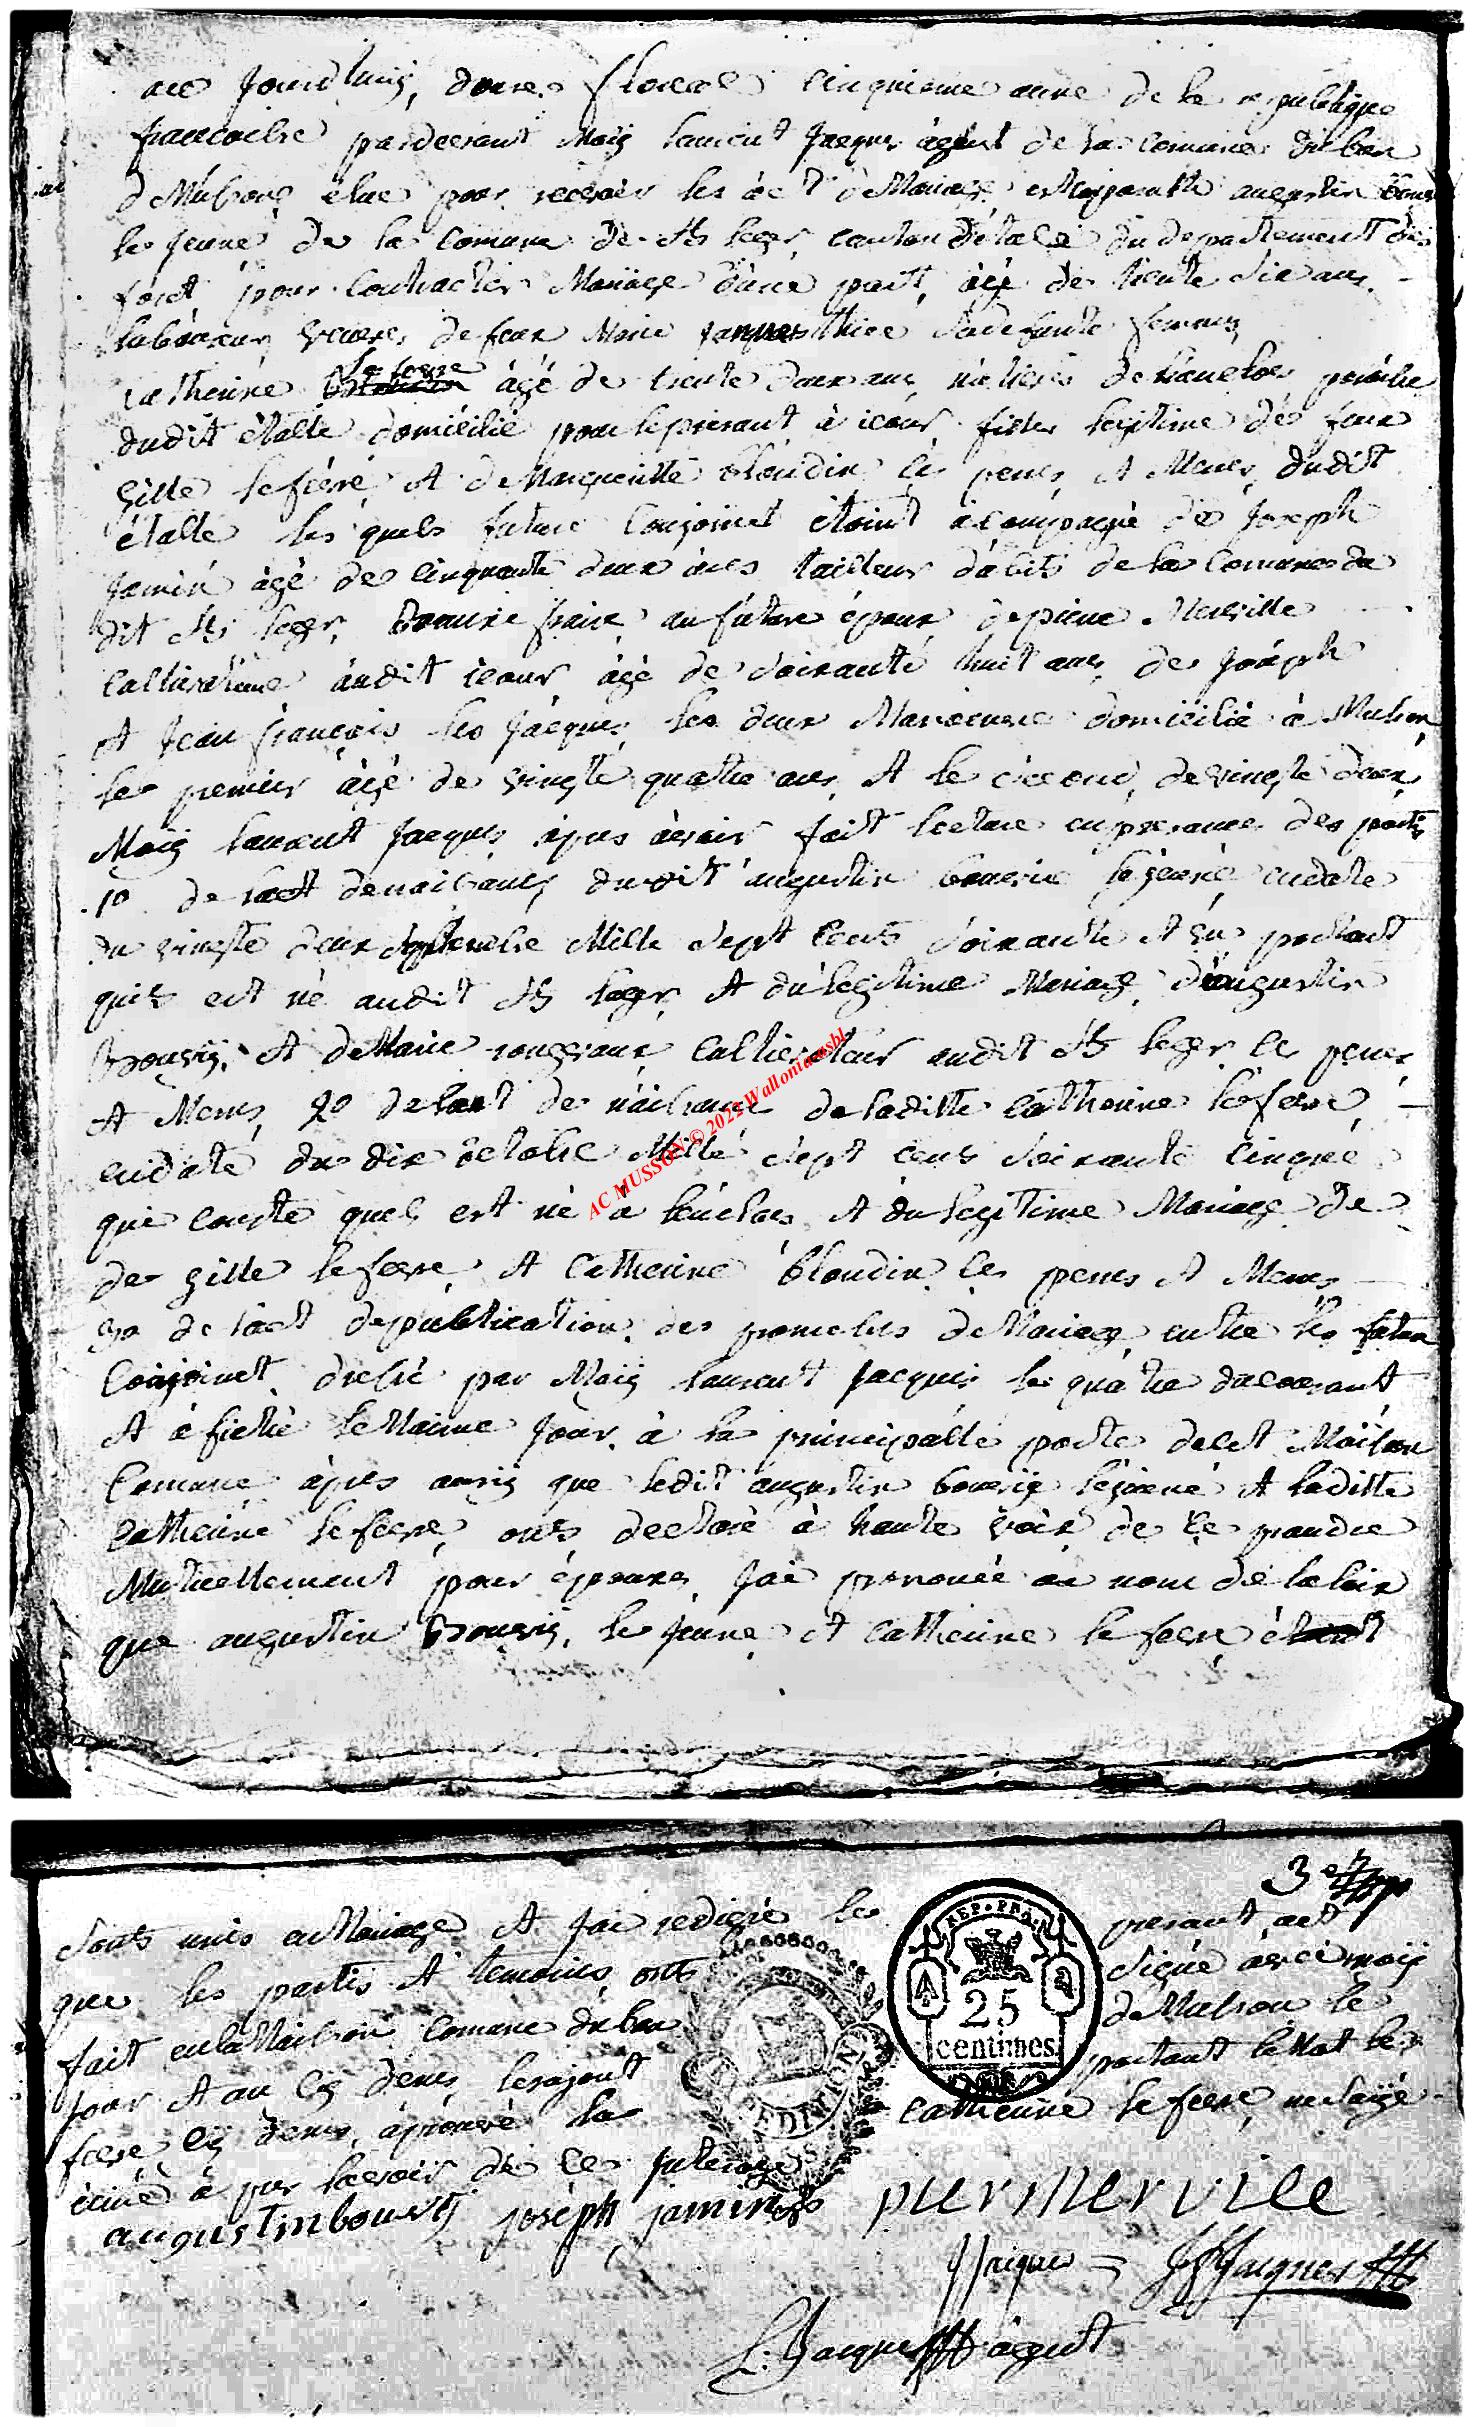 ace Jourdhuij, douze floreal cinquieme anné de la republique
francaisse pardeevant Moij laurent Jacques àgent de la Comune du ban
dMussong élue pour recevoir les àct deMariage est Comparutte augustin
le Jeune de la Comune de St leger canton d'étale du departement des
foret pour Contracter Mariage d'une part, àgé de trente six ans,
labèureur veuve de feux Marie
Catherine le feevre àgé de trente deux ans
dudit étalle domicilié pour le present à icour fille legitime de feux
gille lefèvre et de Margueritte blondin ces peres et Meres dudit
étalle les quels futur Conjoinct étoint acompagné de Joseph
Jamin àgé de cinquante deux àns tailleur d'abits de la Comune du
dit St leger, beaufrere au future époux de piere Merville
Caltivateure audit icour àgé de soixante huit ans, de Joseph
et Jean françois les Jacques les deux domicilié à Musson
le premier àgé de vingte quatre ans et le second de vingte deux
Moij laurent Jacques àpres àvoir fait lecture en presance des partis
1º de lact denaissance dudit augustin bouvrie lejeune en date
du vingte deux septembre Mille sept cents soixante et un portant
quis est né audit St leger et du legitime Mariage d'augustin
Bouvrij, et deMarie rongvaux Caltivateur audit St leger ces peres
et Meres, 2º de lact de naissance de laditte Catherine lefevre
endate du dix òctobre Mille sept cents soixante cinque
qui conste quel est né à et du legitime Mariage de
de gille lefevre et Catherine blondin ces peres et Meres
3º de lact de publication des promesses de Mariage entre les futur
Conjoinct dressé par Moij laurent Jacques le quatre ducourant
et àfiché leMaime Jour à la principalle porte de let Maison
Comune àpres aussij que ledit augustin bouvrij lejeune et laditte
Catherine lefevre onts declaré à haute voix de ce prandre
Mutuellement pour époux, Jaé prononcé au nom dé laloix
que augustin Bouvrij, le Jeune et Catherine le fevre étant
3e
sonts unies en Mariage et Jaé redigéé le present act
que les partis et temoins onts signé àvec moij
fait enlaMaison Comune du ban deMusson le
Jour et an cij denis, lerajout portant le Mot le
fevre cij denis àprouvé la Catherine le fevre, ne laijé
écrire à pur savoir de ce
augustinbouvrij joseph jamin pierMervile
JJacques JfJacques
L: Jacques àgent
REP. FRA.
25
centimes
AC MUSSON © 2022 Walloniaasbl